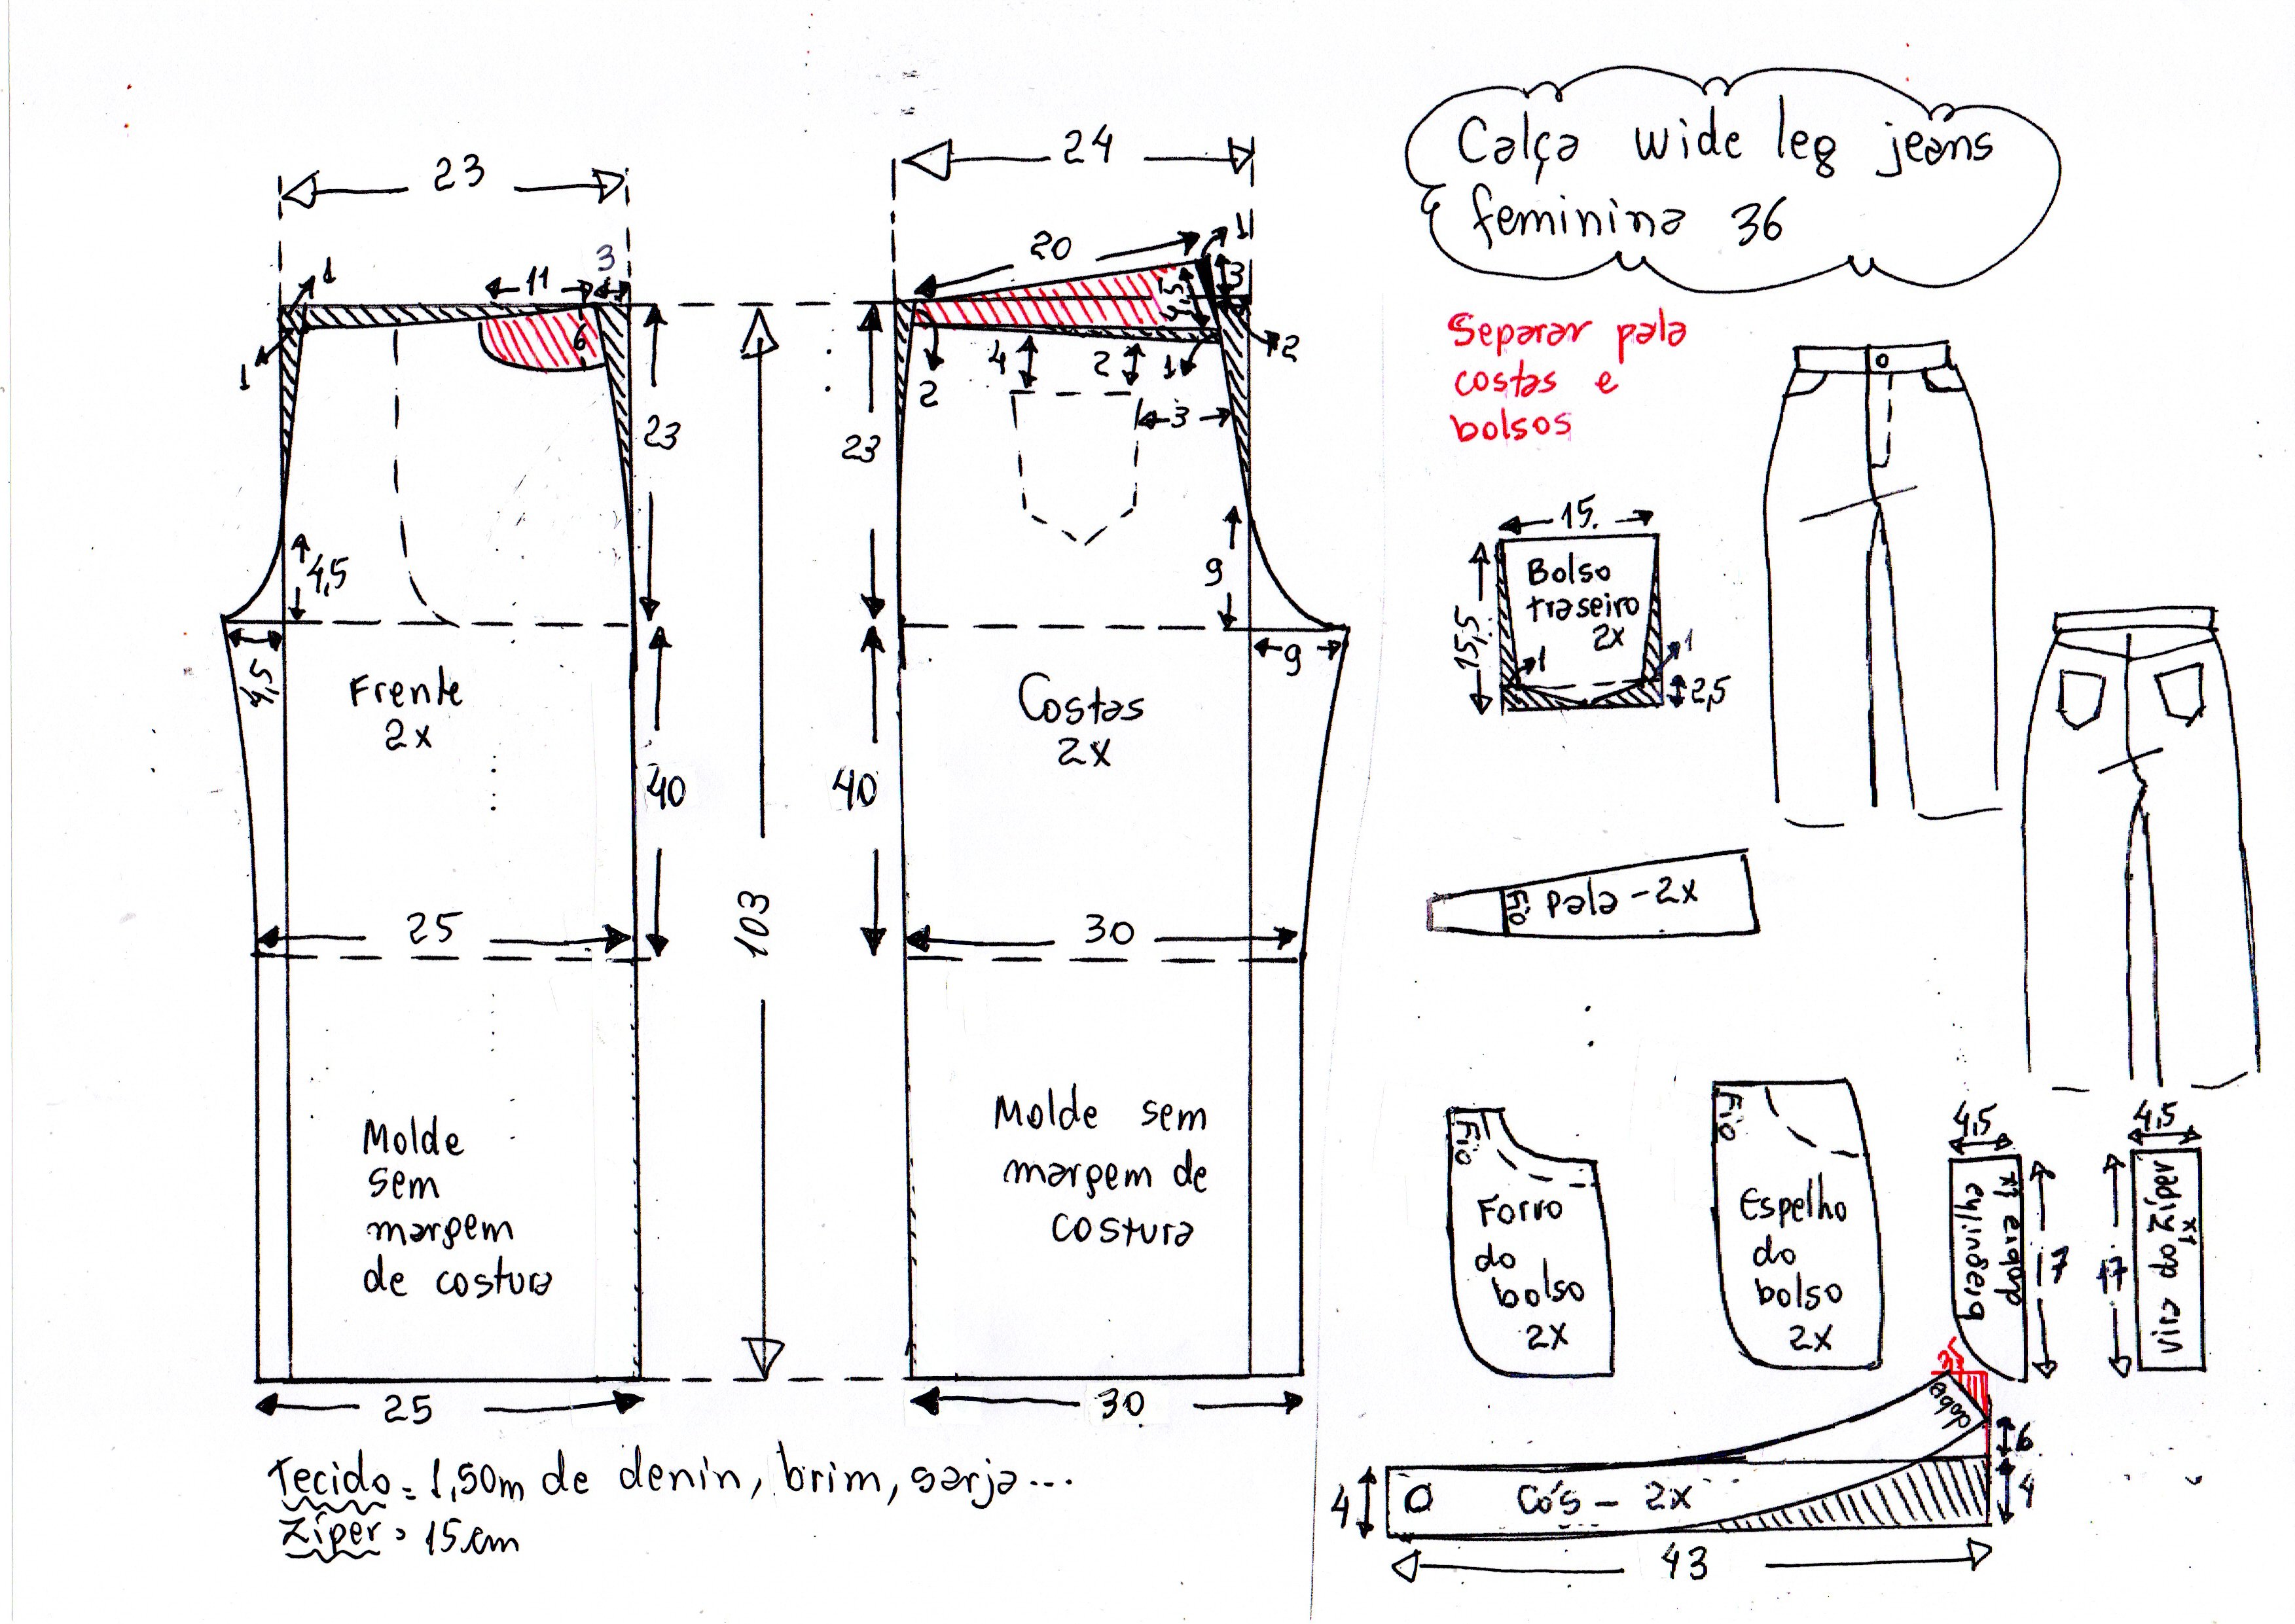 Calça wide leg jeans
feminina 36
23
1
11
3
1
6
23
4,5
4,5
Frente
2x
40
25
Molde
sem
margem
de costura
25
103
24
20
1
3
4,5
2
2
4
2
1
3
23
9
9
Costas
2x
40
30
Molde sem
margem de
costura
30
Separar pala
costas e
bolsos
15
15,5
Bolso
traseiro
2x
1
1
2,5
Fio
Pala - 2x
Fio
Forro
do
bolso
2x
Fio
Espelho
do
bolso
2x
4,5
braguilha
dobrado 1x
17
4,5
vira do zíper
1x
17
dobre
6
4
4
Cós - 2x
43
Tecido = 1,50m de denin, brim, sarja...
Zíper = 15cm